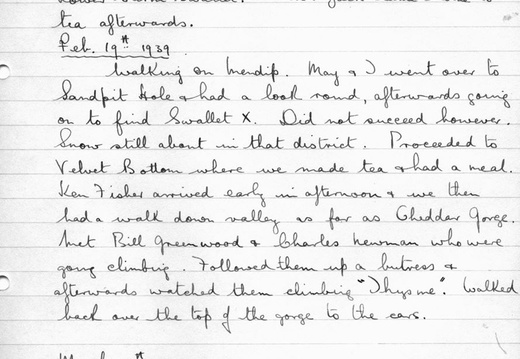 tea afterwards.
Feb. 19th 1939.
Walking on Mendip. May & I went over to
Sandpit Hole & had a look round, afterwards going
on to find Swallet X. Did not succeed however.
Snow still about in that district. Proceeded to
Velvet Bottom where we made tea & had a meal.
Ken Fisher arrived early in afternoon & we then
had a walk down valley as far as Cheddar Gorge.
Met Bill Greenwood & Charles Newman who were
going climbing. Followed them up a butress &
afterwards watched them climbing "Thys me". Walked
back over the top of the gorge to the cars.